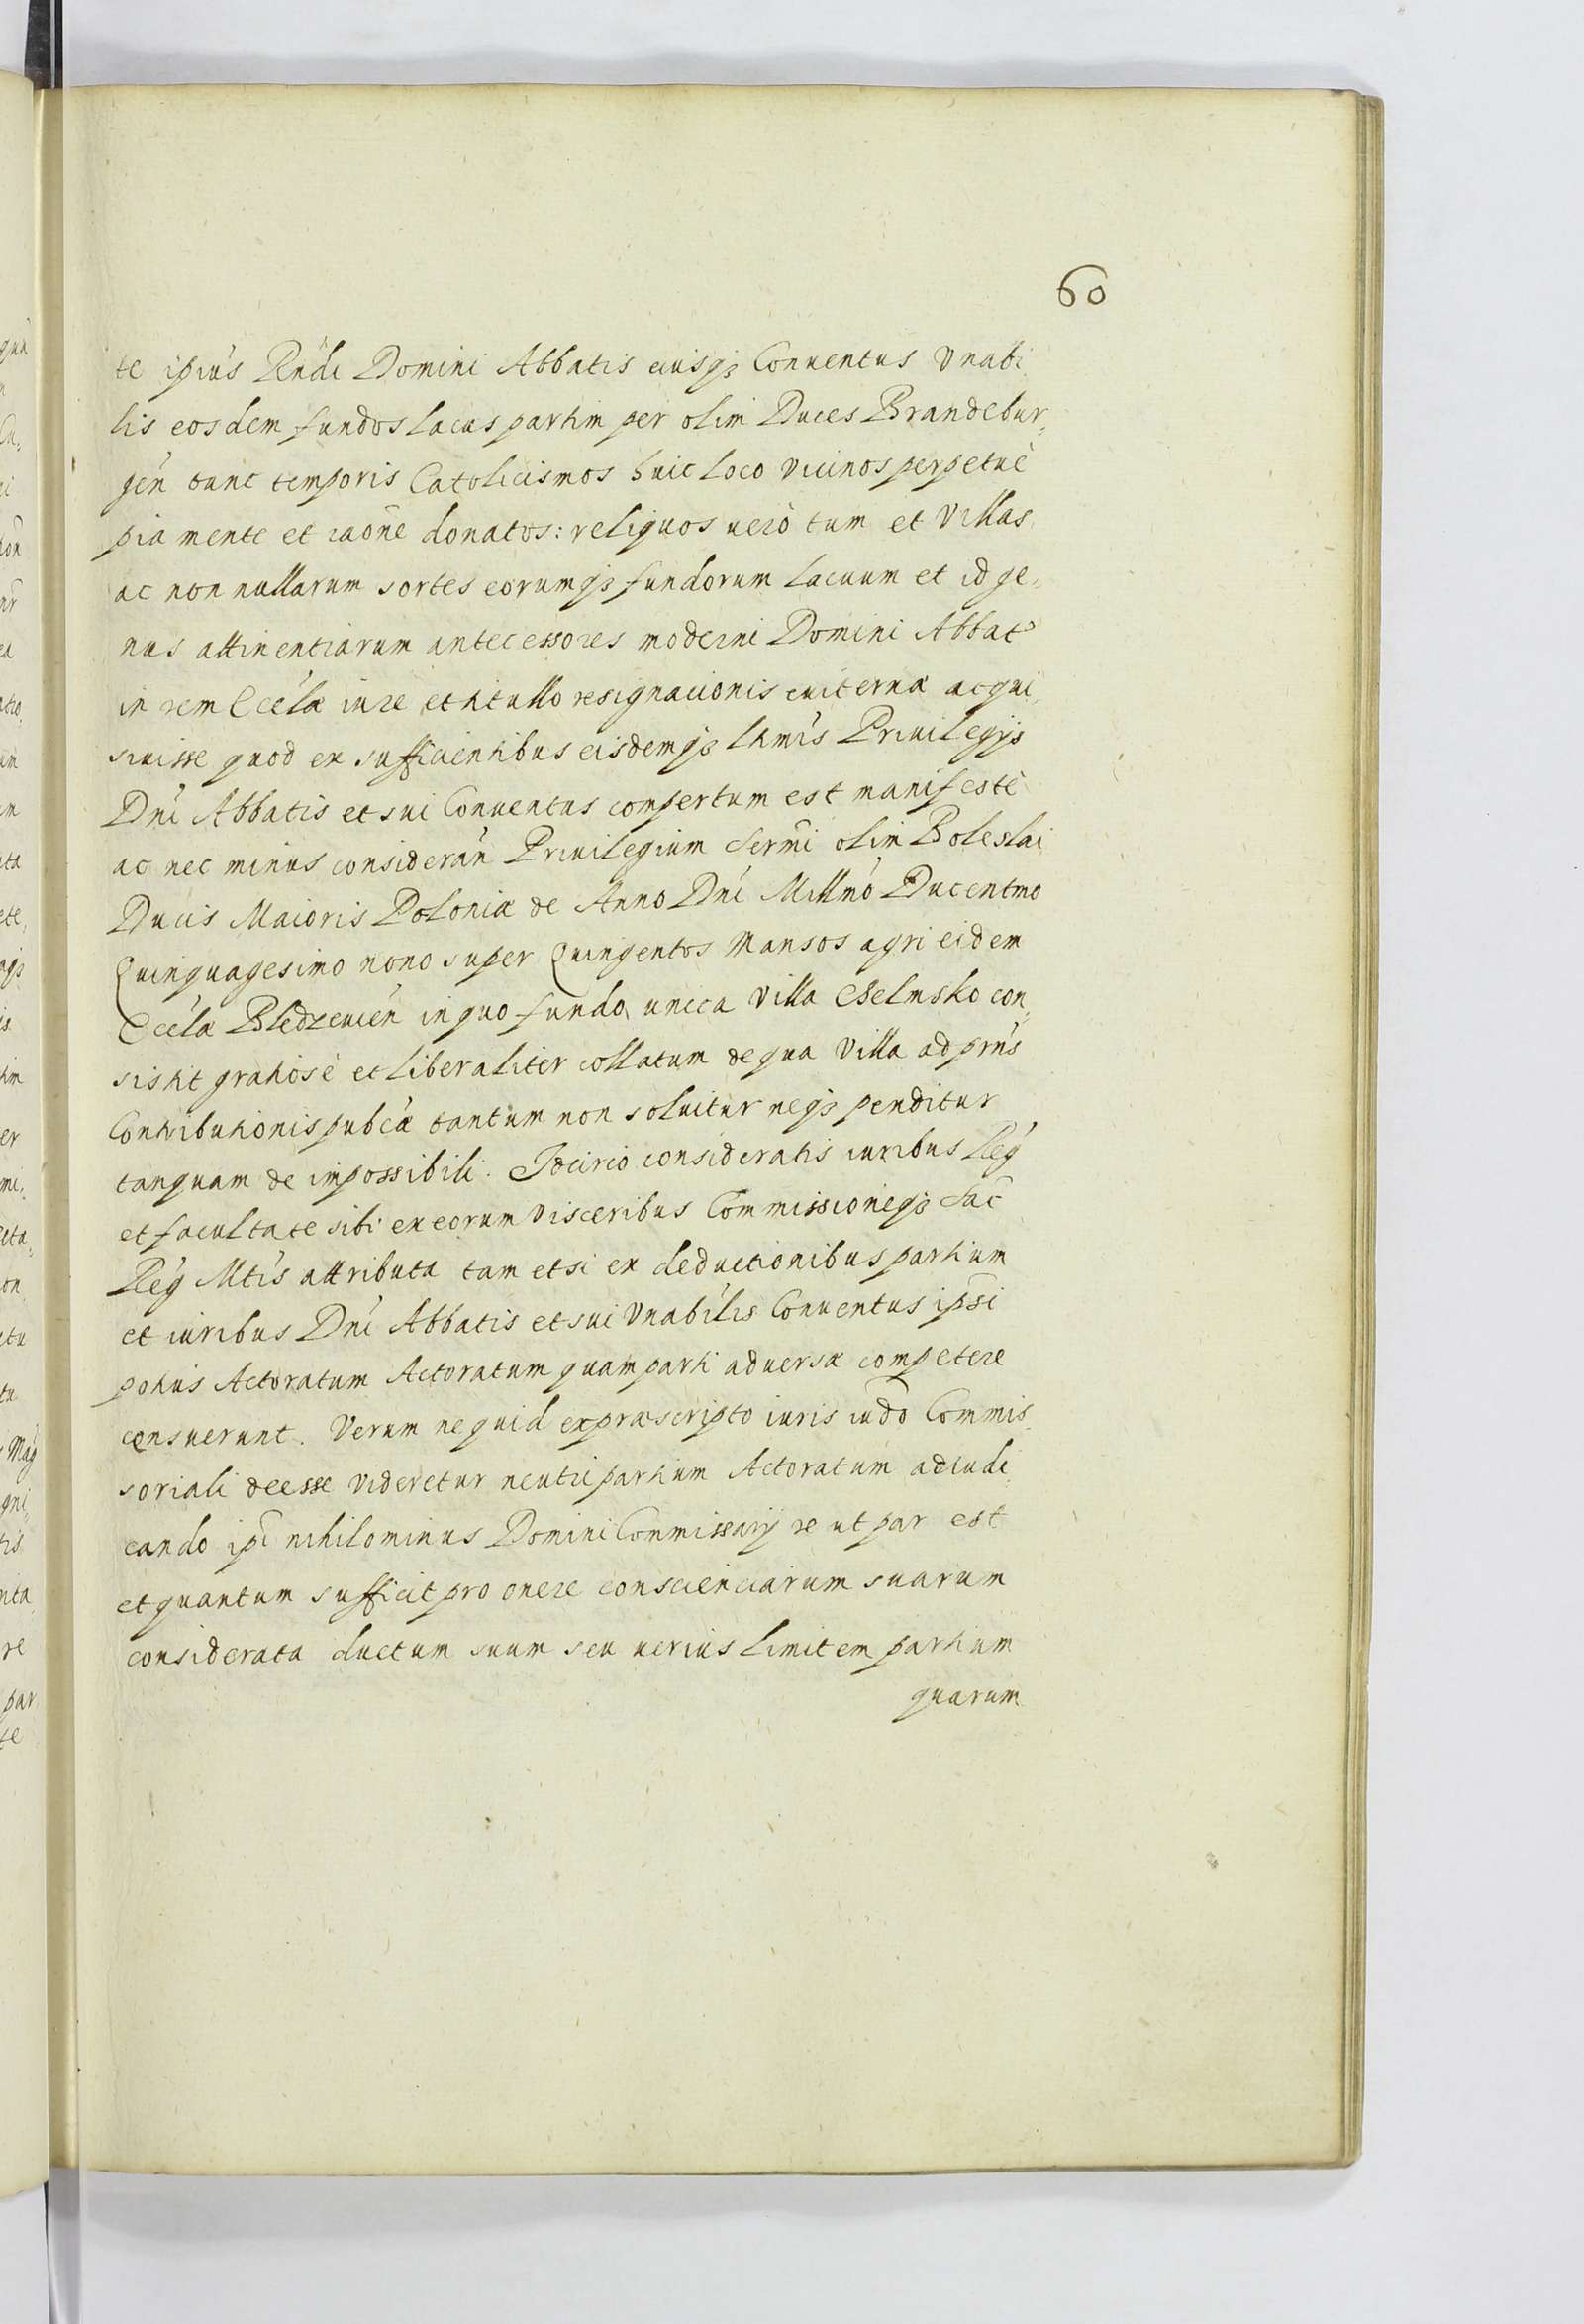 60
te ipius Rndi Domini Abbatis eiusq3 Conuentus Vnabi
lis eosdem fundos lacus partim per olim Duces Brandebur,
gen̄ tunc temporis Catolicismos huic loco vicinos perpetuè
pia mente et raōne donatos: reliquos uerò tum et Villas
ac non nullarum sortes eorumq3 fundorum lacuum et id ge,
nus attinentiarum antecessores moderni Domini Abbat
in rem Eccĺæ iure et titullo resignacionis euiternæ acqui
siuisse quod ex sufficientibus eisdemq3 lt̄mis Priuilegijs
Dni Abbatis et sui Conuentus compertum est manifestè
ac nec minus considerań Priuilegium Serm̄i olim Boleslai
Ducis Maioris Poloniæ de Anno Dni Millm̄o Ducentmo
Quinquagesimo nono super Quingentos Mansos agri eidem
Eccĺæ Bledzeuień in quo fundo unica Villa Chelmsko con,
sistit gratiosè et liberaliter collatum de qua Villa ad prn̄s
Contributionis pubćæ tantum non soluitur neq3 penditur
tanquam de impossibili. Idcirco consideratis iuribus Reg
et facultate sibi ex eorum visceribus Commissioneq3 Sac
Reg Mtis attributa tam etsi ex deductionibus partium
et iuribus Dni Abbatis et sui Vnabilis Conuentus ipsi
potius Actoratum Actoratum quam parti aduersæ competere
censuerunt. Verum ne quid ex præscripto iuris iudo Commis
soriali deesse videretur neutri partium Actoratum adiudi
cando ipi nihilominus Domini Commissarij re ut par est
et quantum sufficit pro onere conscienciarum suarum
considerata ductum suum seu uerius limitem partium
quarum